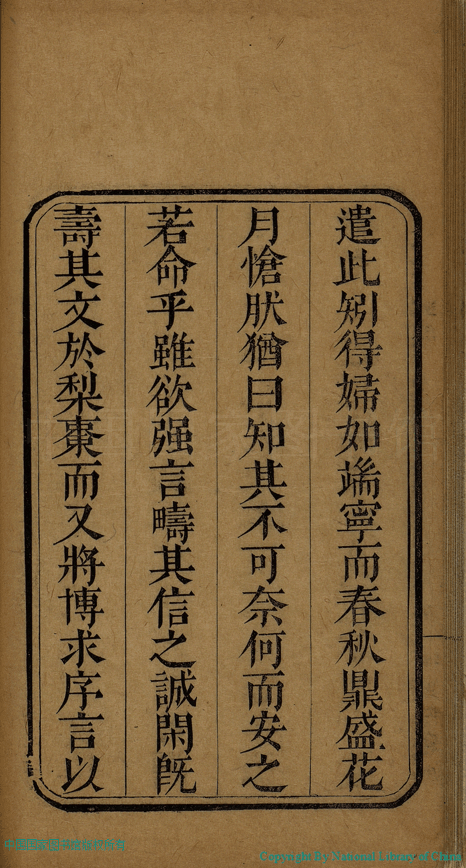 遣此矧得婦如端寧而春秋鼎盛花
月愴肰猶曰知其不可奈何而安之
若命乎雖欲强言疇其信之誠閑旣
壽其文於梨棗而又將博求序言以
Copyright By National Library of China